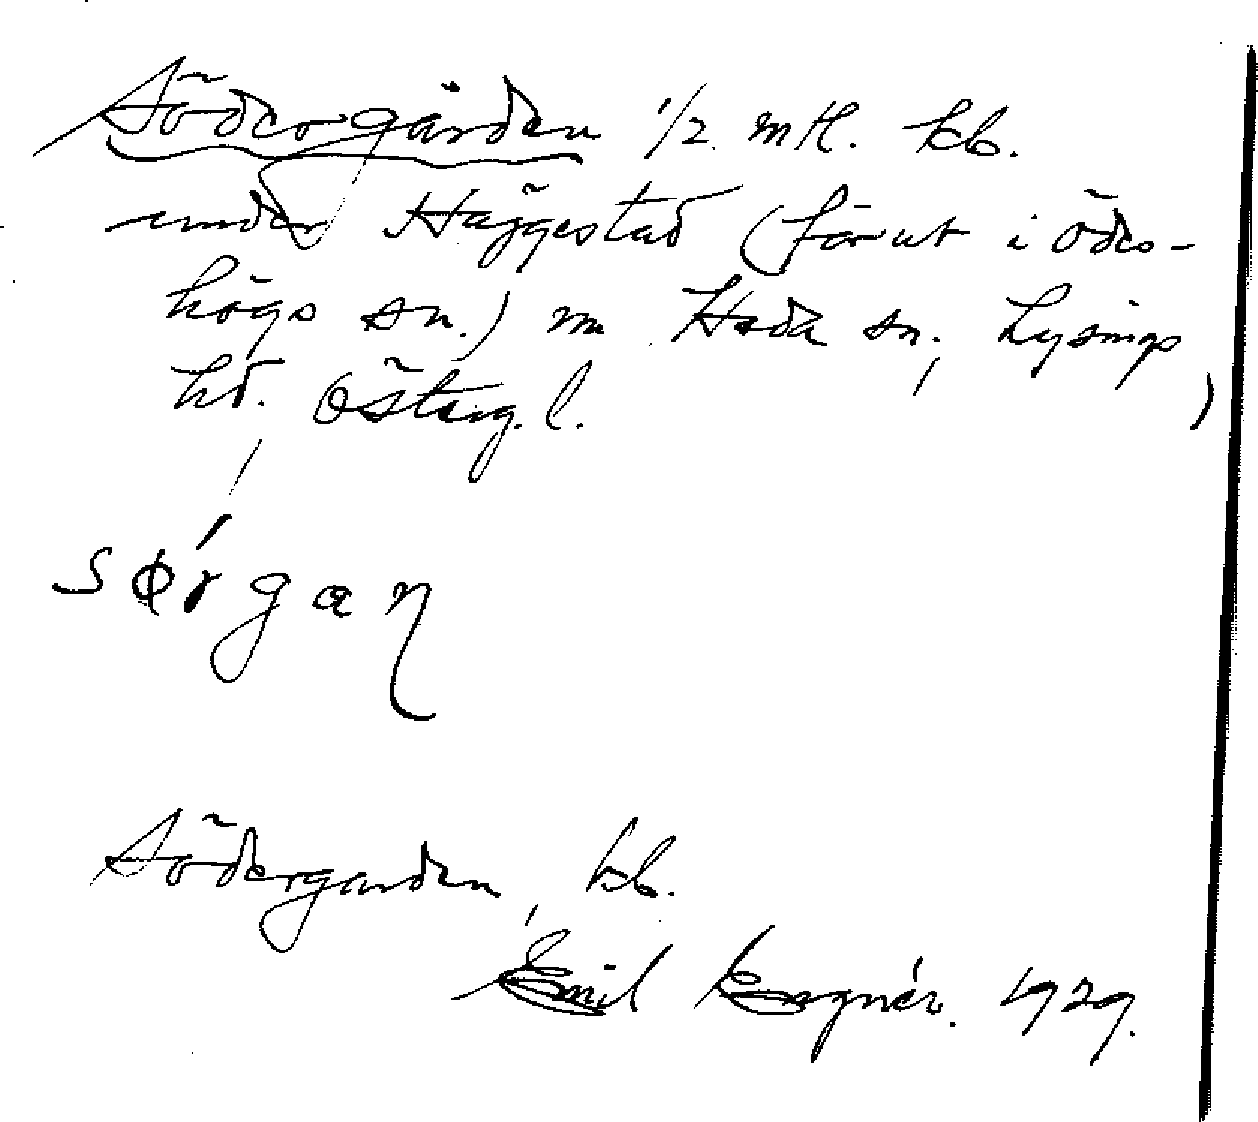 Södergården 1/2 mtl. kb.
under Häggestad (förut i Ödes-
högs sn.) m Heda sn., Lysings
hd. Österg. l.
søŕgaɳ
Södergården, kb.
Emil 1929.